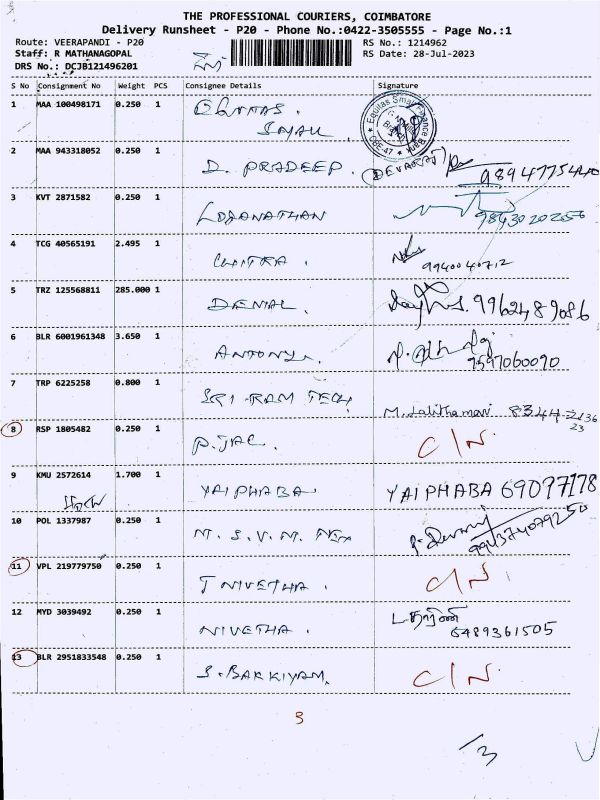 THE PROFESSIONAL COURIERS, COIMBATORE
Delivery Runsheet - P20 - Phone No.:0422-3505555 - Page No.:1
Route: VEERAPANDI - P20 RS No.: 1214962
Staff: R MATHANAGOPAL RS Date: 28-Jul-2023
DRS No.: DCJB121496201
S No Consignment No Weight PCS Consignee Details Signature
1 MAA 100498171 0.250 1
Equitas Small Finance Bank
2 MAA 943318052 0.250 1 D. PRADEEP. (DEVARAJ)
3 KVT 2871582 0.250 1 LOGANATHAN 9843020256
4 TCG 40565191 2.495 1 CHITRA . 9940040712
5 TRZ 125568811 285.000 1 DENIAL. 9962489086
6 BLR 6001961348 3.650 1 ANTONY. 9597060090
7 TRP 6225258 0.800 1 SRI RAM TECH M. Lalithamani 8344-2136
23
8 RSP 1805482 0.250 1 C/N.
9 KMU 2572614 1.700 1 YAIPHABA YAIPHABA 69077178
10 POL 1337987 0.250 1 M. S. V. M.
11 VPL 219779750 0.250 1 T NIVETHA. C/N
12 MYD 3039492 0.250 1 NIVETHA . 6489361505
13 BLR 2951833548 0.250 1 S. BAKKIYAM. C/N.
3
13